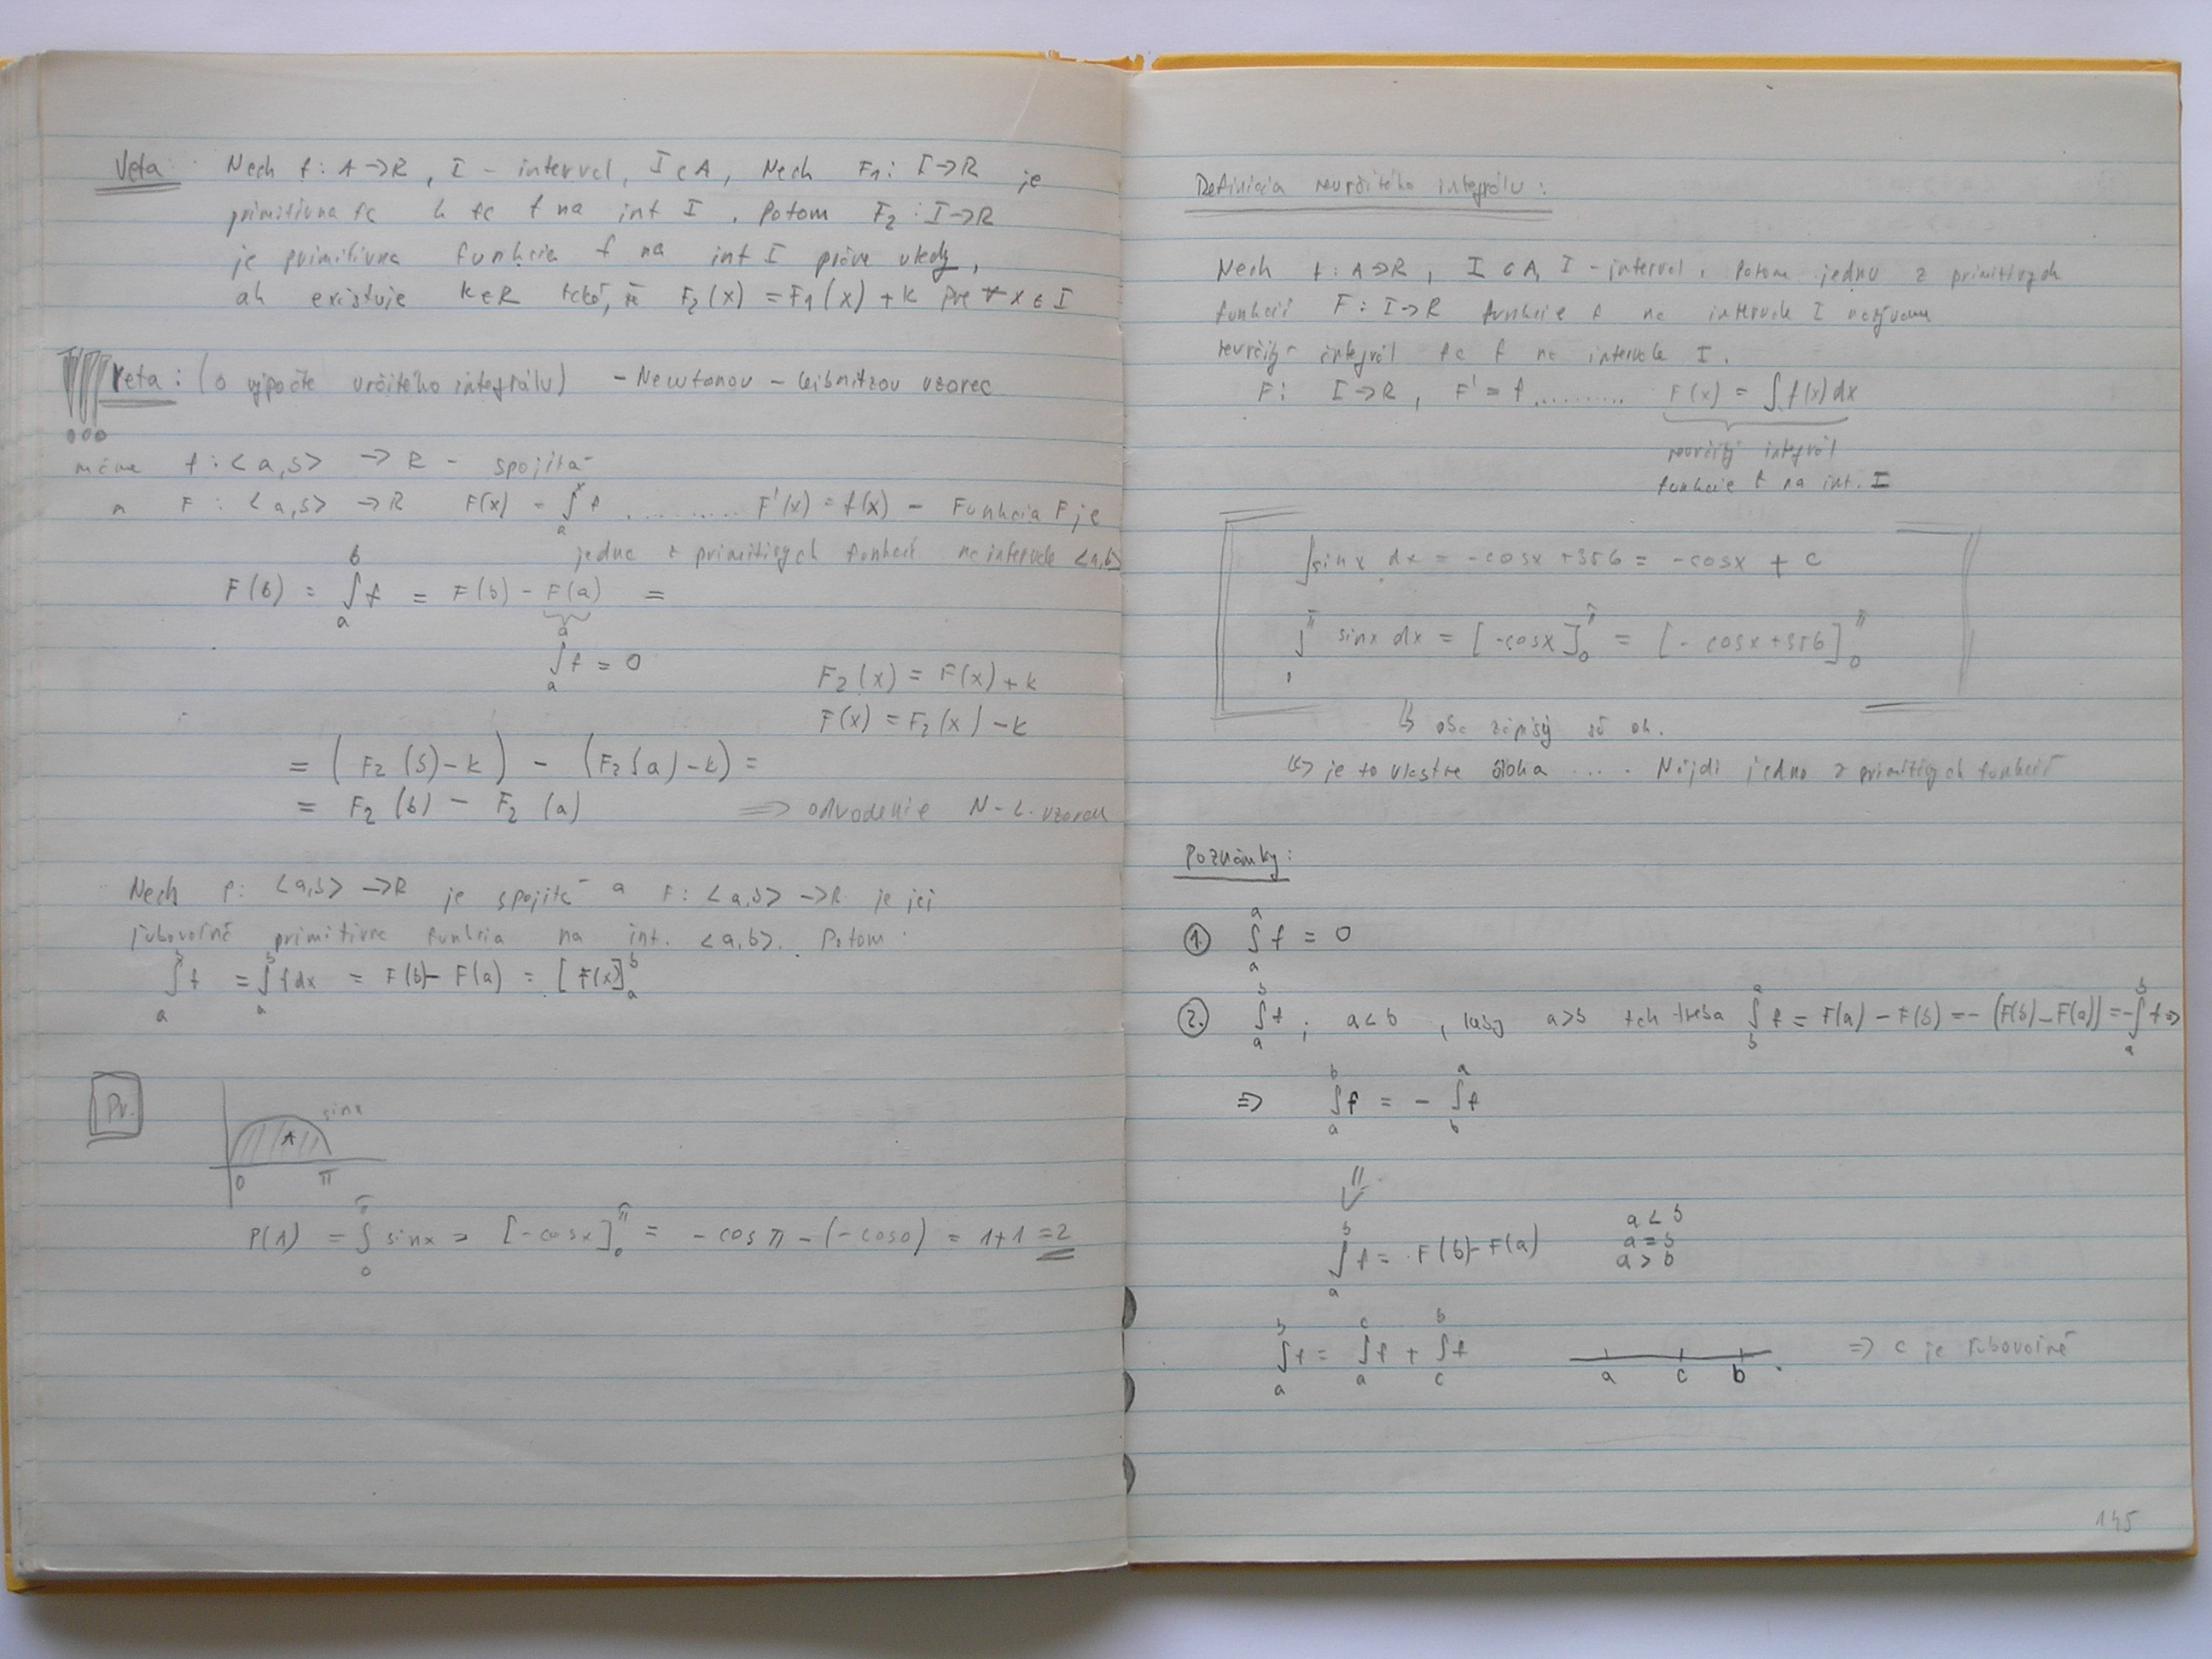 Veta: Nech f: A → R, I - interval, I ⊂ A, Nech F₁: I → R je
primitívna fc k fc f na int I. Potom F₂: I → R
je primitívna funkcia f na int I práve vtedy,
ak existuje k ∈ R také, že F₂(x) = F₁(x) + k pre ∀ x ∈ I
Veta: (o výpočte určitého integrálu) - Newtonov - Leibnitzov vzorec
máme f: <a,b> → R - spojitá
F: <a,b> → R F(x) = ∫ₐˣ f .......... F'(x) = f(x) - Funkcia F je
jedna z primitívych funkcií na intervale <a,b>
F(b) = ∫ₐᵇ f = F(b) - F(a) =
∫ₐᵃ f = 0
F₂(x) = F(x) + k
F(x) = F₂(x) - k
= (F₂(b) - k) - (F₂(a) - k) =
= F₂(b) - F₂(a) ⇒ odvodenie N-L. vzorca
Nech f: <a,b> → R je spojitá a F: <a,b> → R je jej
ľubovoľná primitívna funkcia na int. <a,b>. Potom
∫ₐᵇ f = ∫ₐᵇ f dx = F(b) - F(a) = [F(x)]ₐᵇ
Pr.
sinx
A
0 π
P(A) = ∫₀^π sinx = [-cosx]₀^π = -cos π - (-cos0) = 1+1 = 2
Definícia neurčitého integrálu:
Nech f: A → R, I ⊂ A, I - interval. Potom jednu z primitívych
funkcií F: I → R funkcie f na intervale I nazývame
neurčitý integrál fc f na intervale I.
F: I → R, F' = f .......... F(x) = ∫ f(x) dx
neurčitý integrál
funkcie f na int. I
∫ sinx dx = -cosx + 356 = -cosx + c
∫ π sinx dx = [-cosx]₀^π = [-cosx + 356]₀^π
↳ oba zápisy sú ok.
↳ je to vlastne úloha .... Nájdi jednu z primitívych funkcií
Poznámky:
1. ∫ₐᵃ f = 0
2. ∫ₐᵇ f; a < b, keby a > b tak treba ∫_b^a f = F(a) - F(b) = -(F(b) - F(a)) = -∫ₐᵇ f ⇒
⇒ ∫ₐᵇ f = - ∫_b^a f
⇓
∫ₐᵇ f = F(b) - F(a) a < b
a = b
a > b
∫ₐᵇ f = ∫ₐᶜ f + ∫_c^b f a c b ⇒ c je ľubovoľné
145